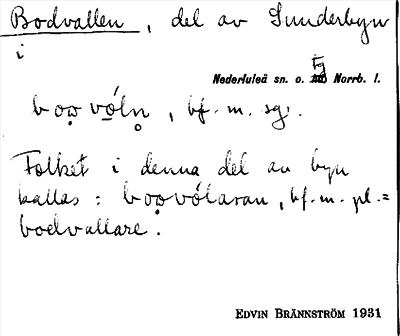 Bodvallen, del av Sunderbyn
i
Nederluleå sn. o. tg Norrb. l.
bọọvó̱ln̥, bf. m. sg.
Folket i denna del av byn
kallas: bọọvólaran, bf. m. pl. =
bodvallare.
EDVIN BRÄNNSTRÖM 1931